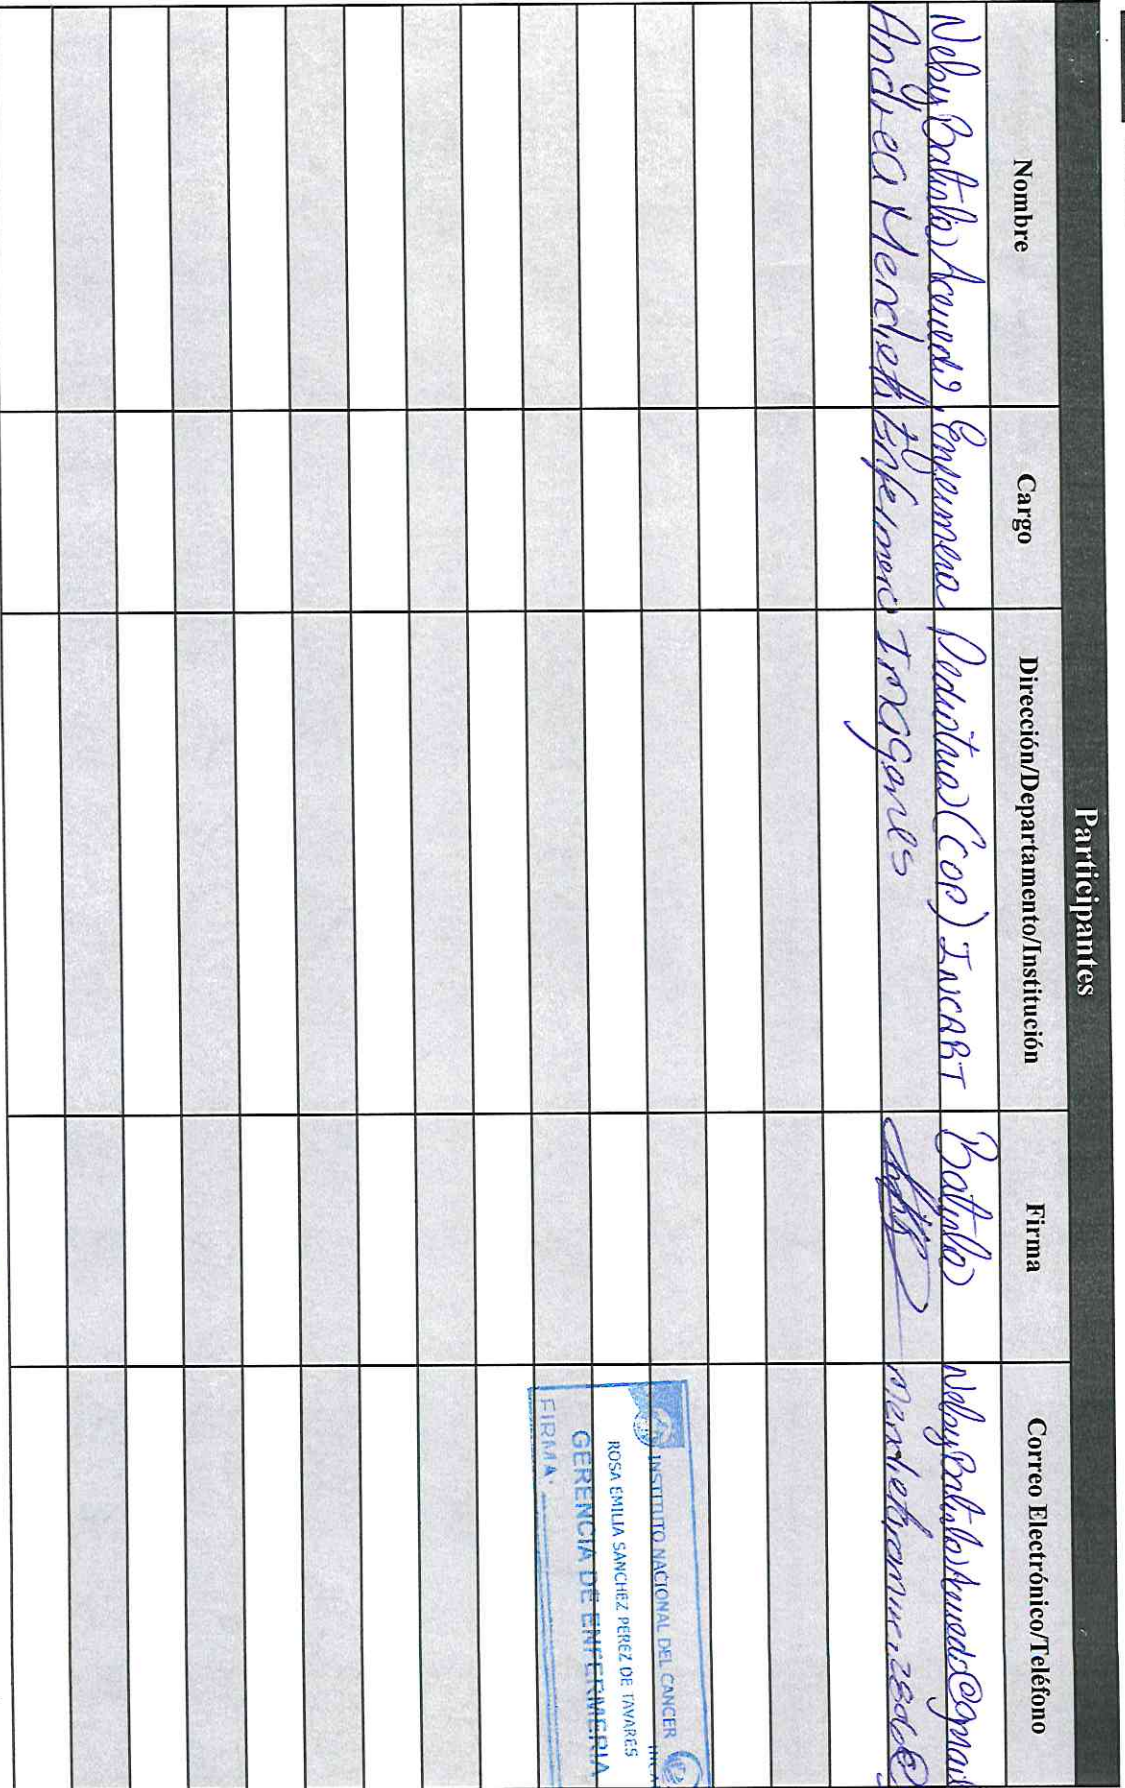 Participantes
Nombre Cargo Dirección/Departamento/Institución Firma Correo Electrónico/Teléfono
Nelsy Batista Acevedo Enfermera Pediatria (COP) INCART Batista
Andrea Mendieta Enfermera Imagenes
INSTITUTO NACIONAL DEL CANCER
ROSA EMILIA SANCHEZ PEREZ DE TAVARES
GERENCIA DE ENFERMERIA
FIRMA: